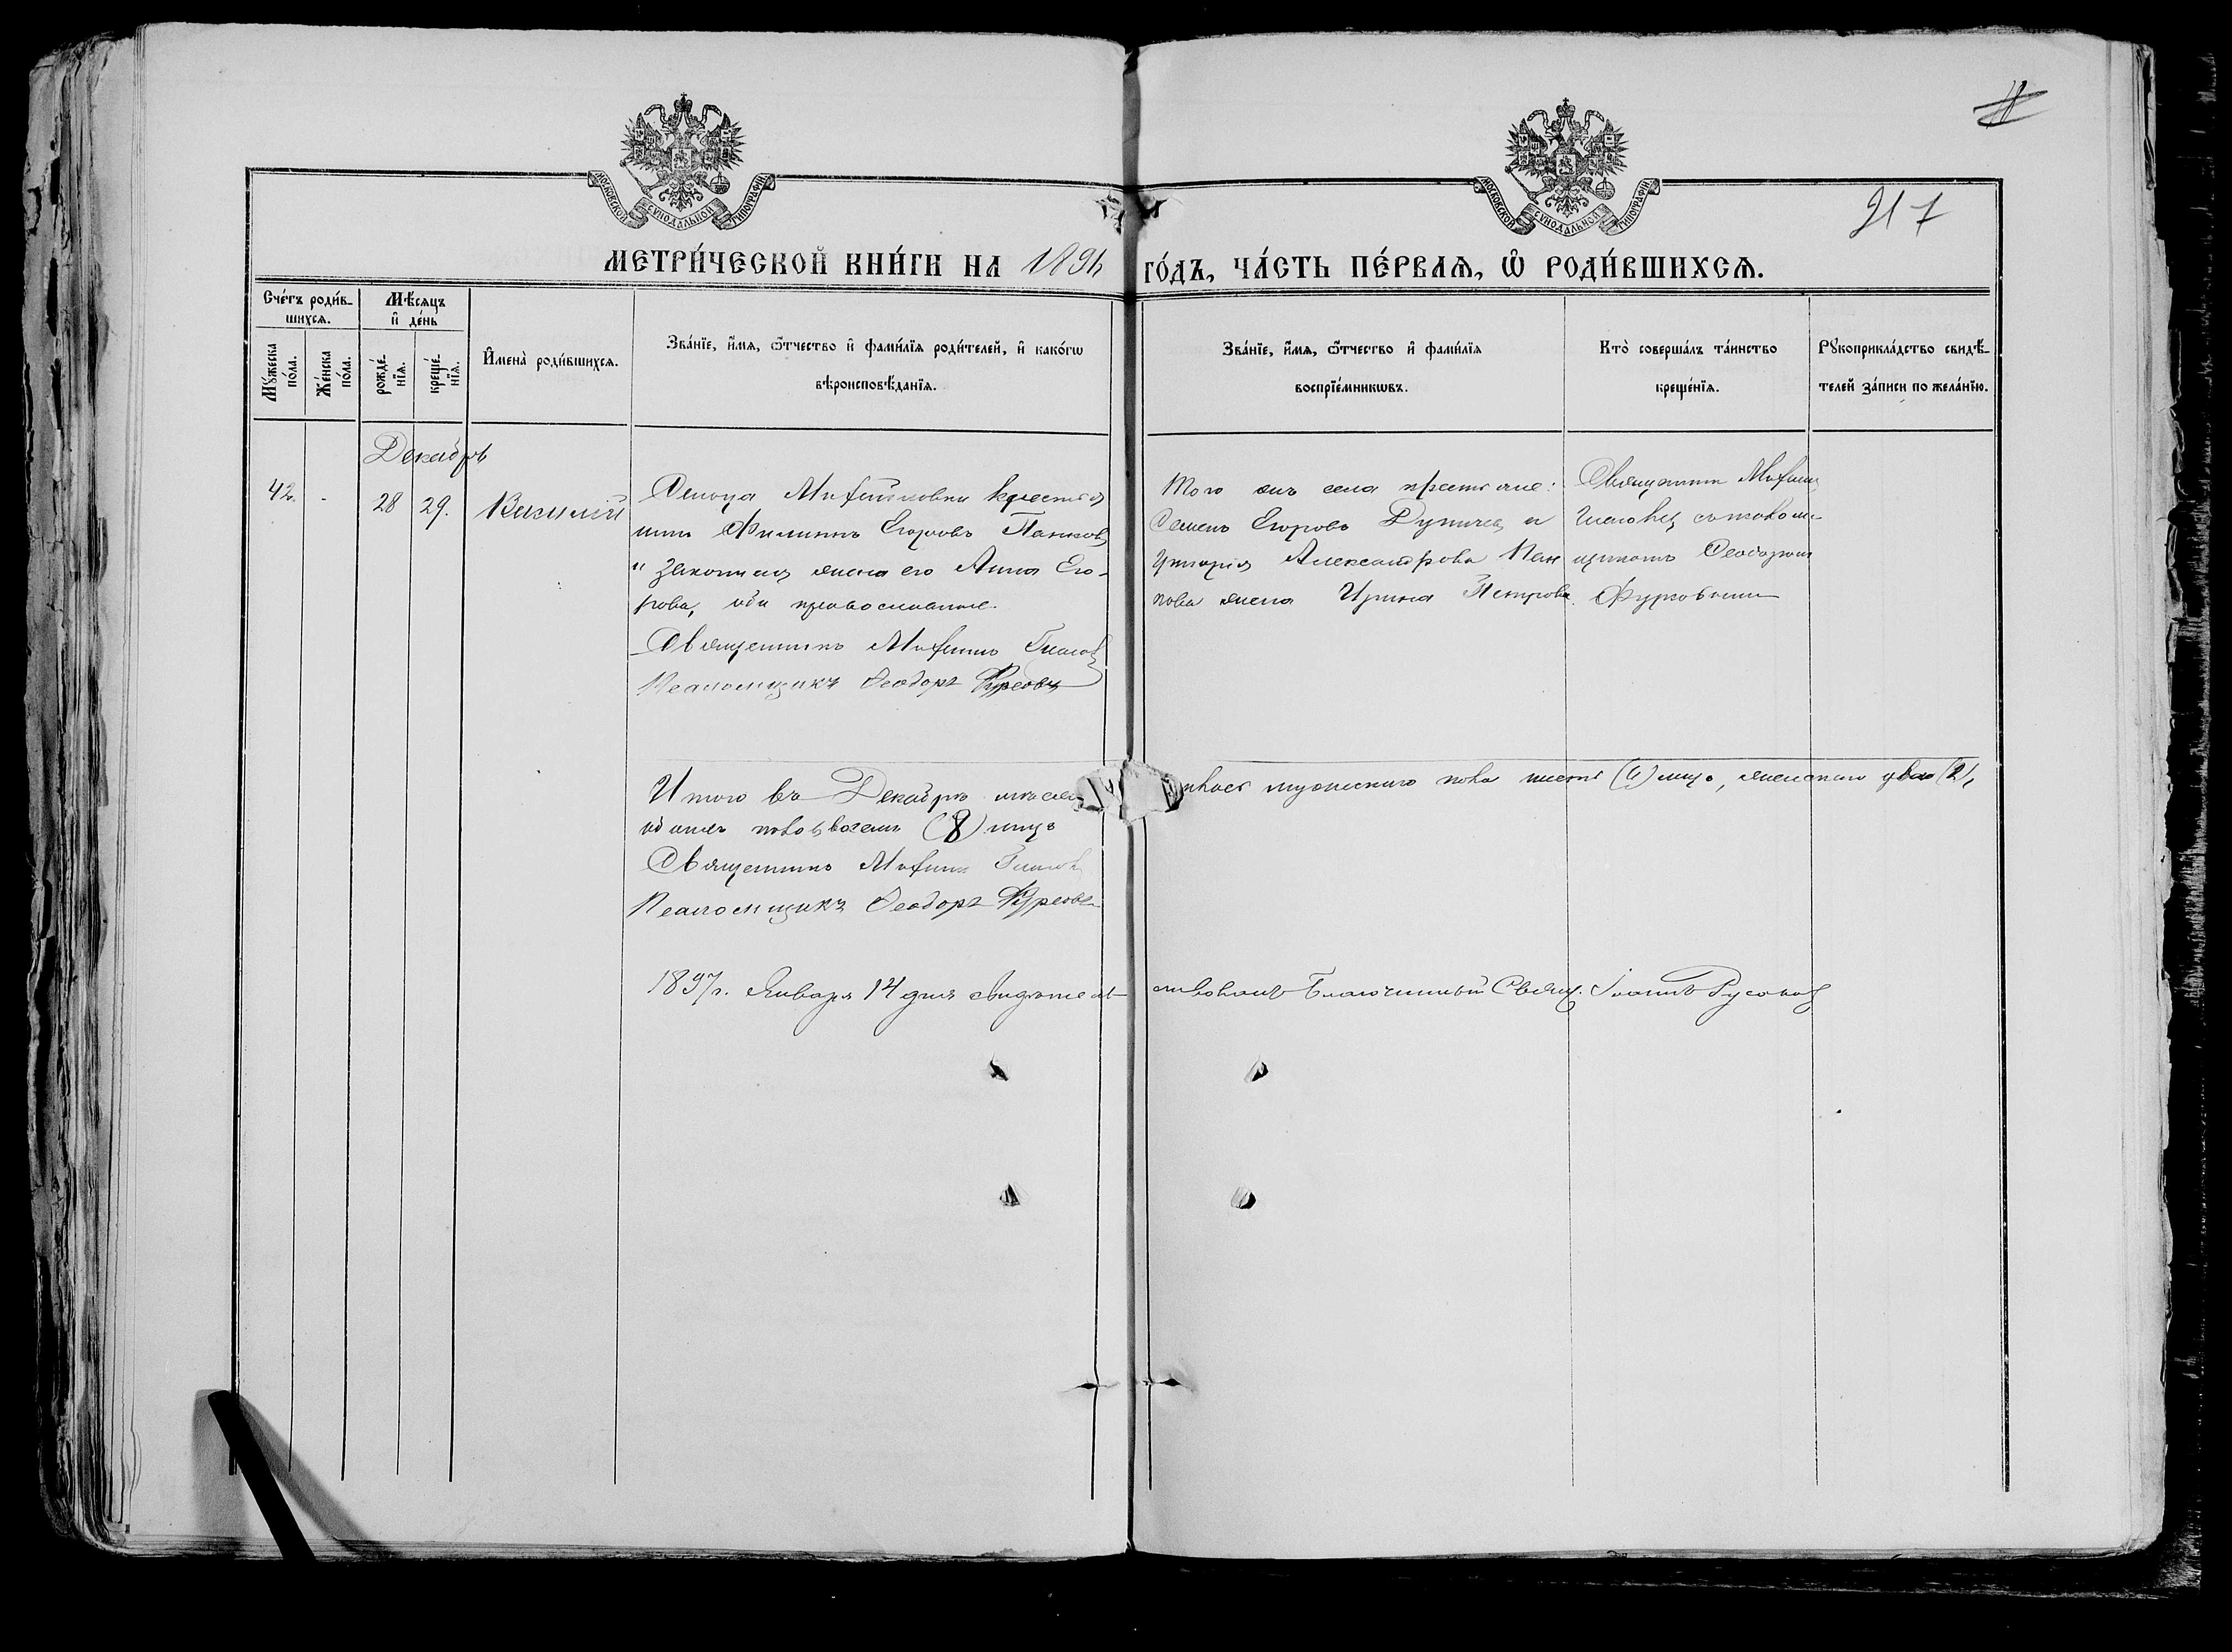 МОСКОВСКОЙ СѴНОДАЛЬНОЙ ТИПОГРАФІИ
МОСКОВСКОЙ СѴНОДАЛЬНОЙ ТИПОГРАФІИ
217
МЕТРИ́ЧЕСКОЙ КНИ́ГИ НА 1896 ГО́ДЪ, ЧА́СТЬ ПЕ́РВАЯ, Ѡ҆ РОДИ́ВШИХСЯ.
Сче́тъ роди́в-
шихся.
Мꙋ́жеска по́ла.
Же́нска по́ла.
Мѣ́сяцъ
и҆ де́нь
рожде́нїя.
креще́нїя.
И҆мена̀ роди́вшихся.
Зва́нїе, и҆́мя, ѻ҆́тчество и҆ фами́лїя роди́телей, и҆ како́гѡ
вѣроисповѣ́данїя.
Зва́нїе, и҆́мя, ѻ҆́тчество и҆ фами́лїя
воспрїе́мникѡвъ.
Кто̀ соверша́лъ та́инство
креще́нїя.
Рꙋкоприкла́дство свидѣ́-
телей за́писи по жела́нїю.
Декабрь
42. - 28 29. Василій
Села Крестья
нинъ Филиппъ Егоровъ Панковъ
и законная жена его Анна Его-
рова, оба православные.
Священникъ Михаилъ
Псаломщикъ Ѳеодоръ
Того же села крестьяне:
Семенъ Егоровъ и
Александрова Пан
кова жена Ирина Петрова.
Священникъ Михаилъ
съ псалом-
щикомъ Ѳеодоромъ
Итого въ Декабрѣ мѣсяцѣ мужескаго пола шесть (6) лицъ, женскаго два (2),
обоего пола восемь (8) лицъ
Священникъ Михаилъ
Псаломщикъ Ѳеодоръ
1897 г. Января 14 дня свидѣтельствовалъ Благочинный Свящ. Іоаннъ